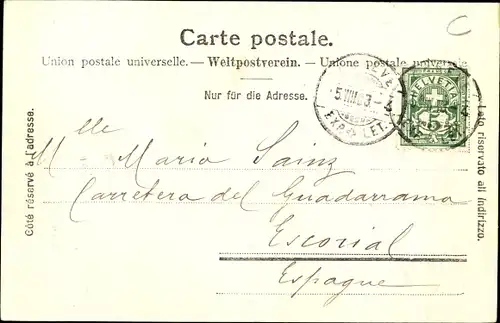 C
Carte postale.
Union postale universelle. — Weltpostverein. — Unione postale universale
Nur für die Adresse.
Côté réservé à l'adresse.
Lato riservato all indirizzo.
HELVETIA
5
5.VIII.03
EXP. LET.
Mlle Maria Sainz
Carretera del Guadarrama
Escorial
Espagne